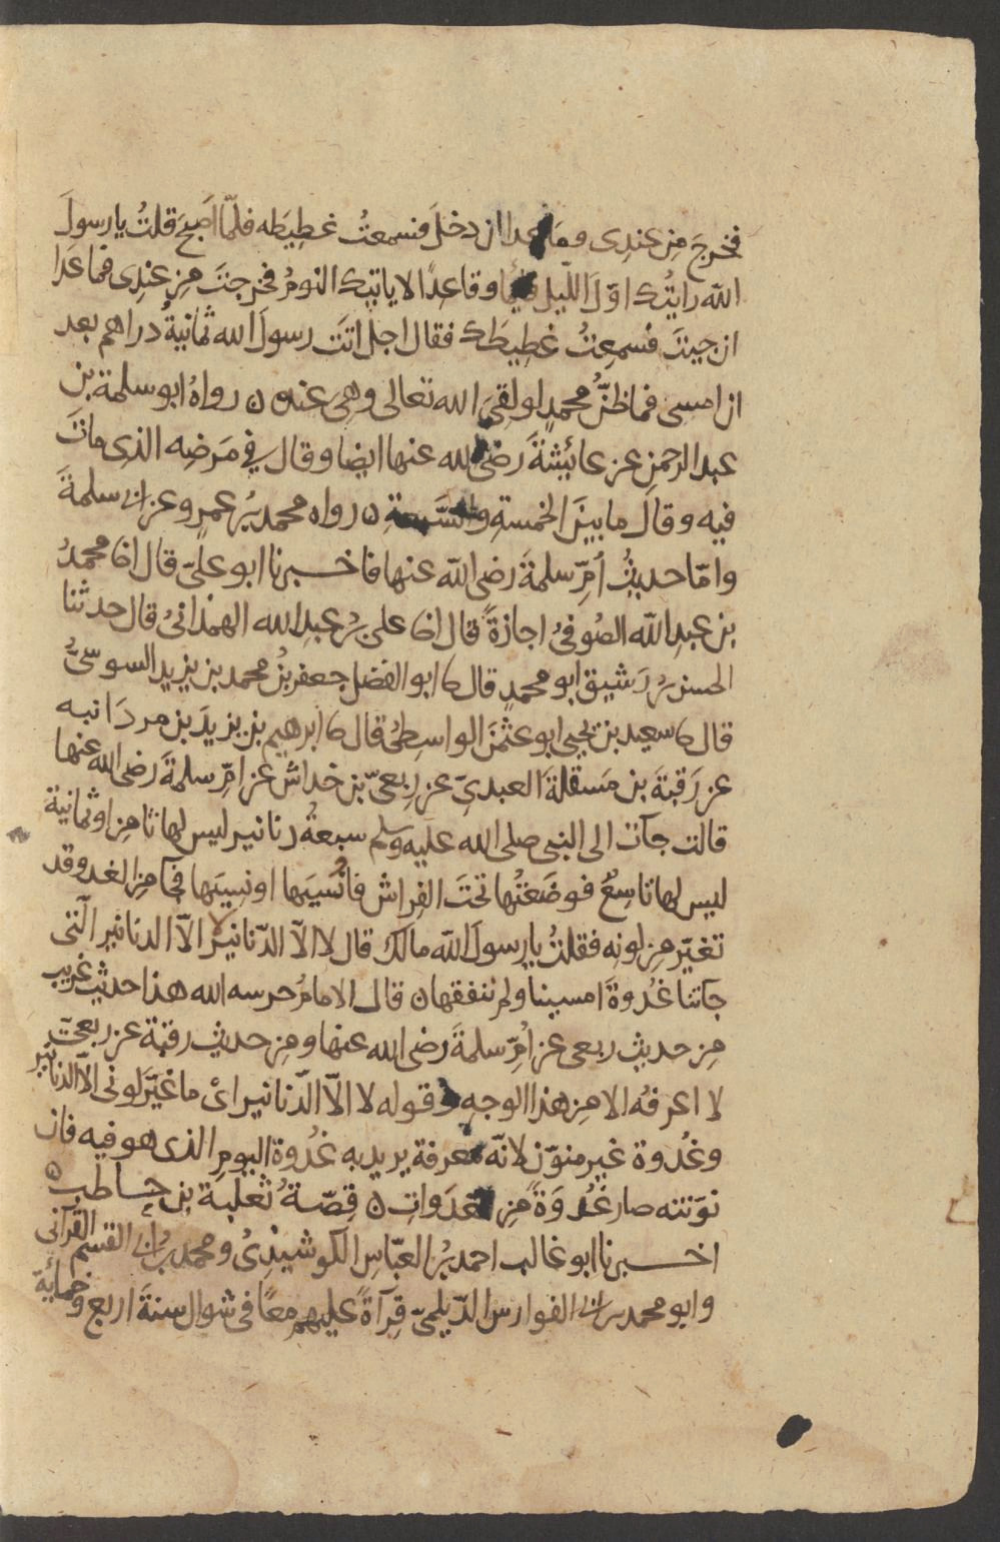 فخرجَ مِن عندِى وما عدا ان دخلَ فسمعتُ غطيطَه فلمّا اَصبحَ قلتُ يا رسولَ
الله رايتُك اوّلَ اللّيلِ وقاعدًا لا ياتيك النومُ فخرجتَ من عندِى فما عَدا
ان جيتَ فسمعتُ غطيطَك فقال اجل اتَت رسولَ الله ثمانيةُ دراهم بعد
ان امسى فما ظنُّ محمدٍ لو لقىَ الله تعالى وهى عنده ۝ رواهُ ابو سلمة بن
عبد الرحمنِ عن عائشةَ رضى الله عنها ايضا وقال فى مَرَضِه الذى ماتَ
فيه وقالَ ما بينَ الخمسةِ والسَّبعةِ ۝ رواه محمد بنُ عمرٍو عن ابى سلمةَ
وامّا حديثُ اُمِّ سلمةَ رضى الله عنها فاخبرنا ابو علىّ قال انا محمدُ
بن عبدِ الله الصُوفىُّ اجازةً قال انا على بنُ عبدِ الله الهمذانىُّ قال حدثنا
الحسن بنُ رَشيق ابو محمدٍ قال نا ابو الفضل جعفر بنُ محمد بن يزيد السوسىُّ
قال نا سعيد بن يحيى ابو عثمنَ الواسِطىُّ قال نا ابرهيم بن يزيدَ بن مردَانبه
عن رَقبةَ بن مَسقلةَ العبدىّ عن رِبعىّ بن خداش عن امِّ سلمةَ رضى الله عنها
قالت جآت الى النبى صلى الله عليه وسلم سبعةُ دنانير ليس لها ثامن او ثمانية
ليس لها تاسِعٌ فوضَعَتُها تحتَ الفِراش فانُسيَها او نسيتها فجآ مِن الغد وقد
تغيّر مِن لونه فقلتُ يا رسولَ الله مالك قال لا الّا الدّنانيرَ الّا الدنانير الّتى
جآتنا غُدوةَ امسينا ولم ننفقها ۝ قال الامامُ حرسه الله هذا حديث غريب
مِن حديثِ ربعى عن اُمِّ سلمةَ رضى الله عنها ومِن حديثِ رقبة عن ربعىّ
لا اعرفُه الا مِن هذا الوجهِ وقوله لا الّا الدّنانير اىْ ما غيّرَ لونى الّا الدنانير
وغُدوة غير منوّن لانّه معرفة يريد به غُدوةَ اليومِ الذى هو فيه فان
نوّنته صار غُدوَةً مِن الغدَواتِ ۝ قِصّةُ ثعلبَة بن حاطب ۝
اخبرنا ابو غالب احمد بنُ العبّاسِ الكوشيذىُّ ومحمد بن ابى القسم القرآنى
وابو محمد بن ابى الفوارس الدّيلمىّ قِرآةً عليهم معًا فى شوال سنةَ اربع وخمسمائة